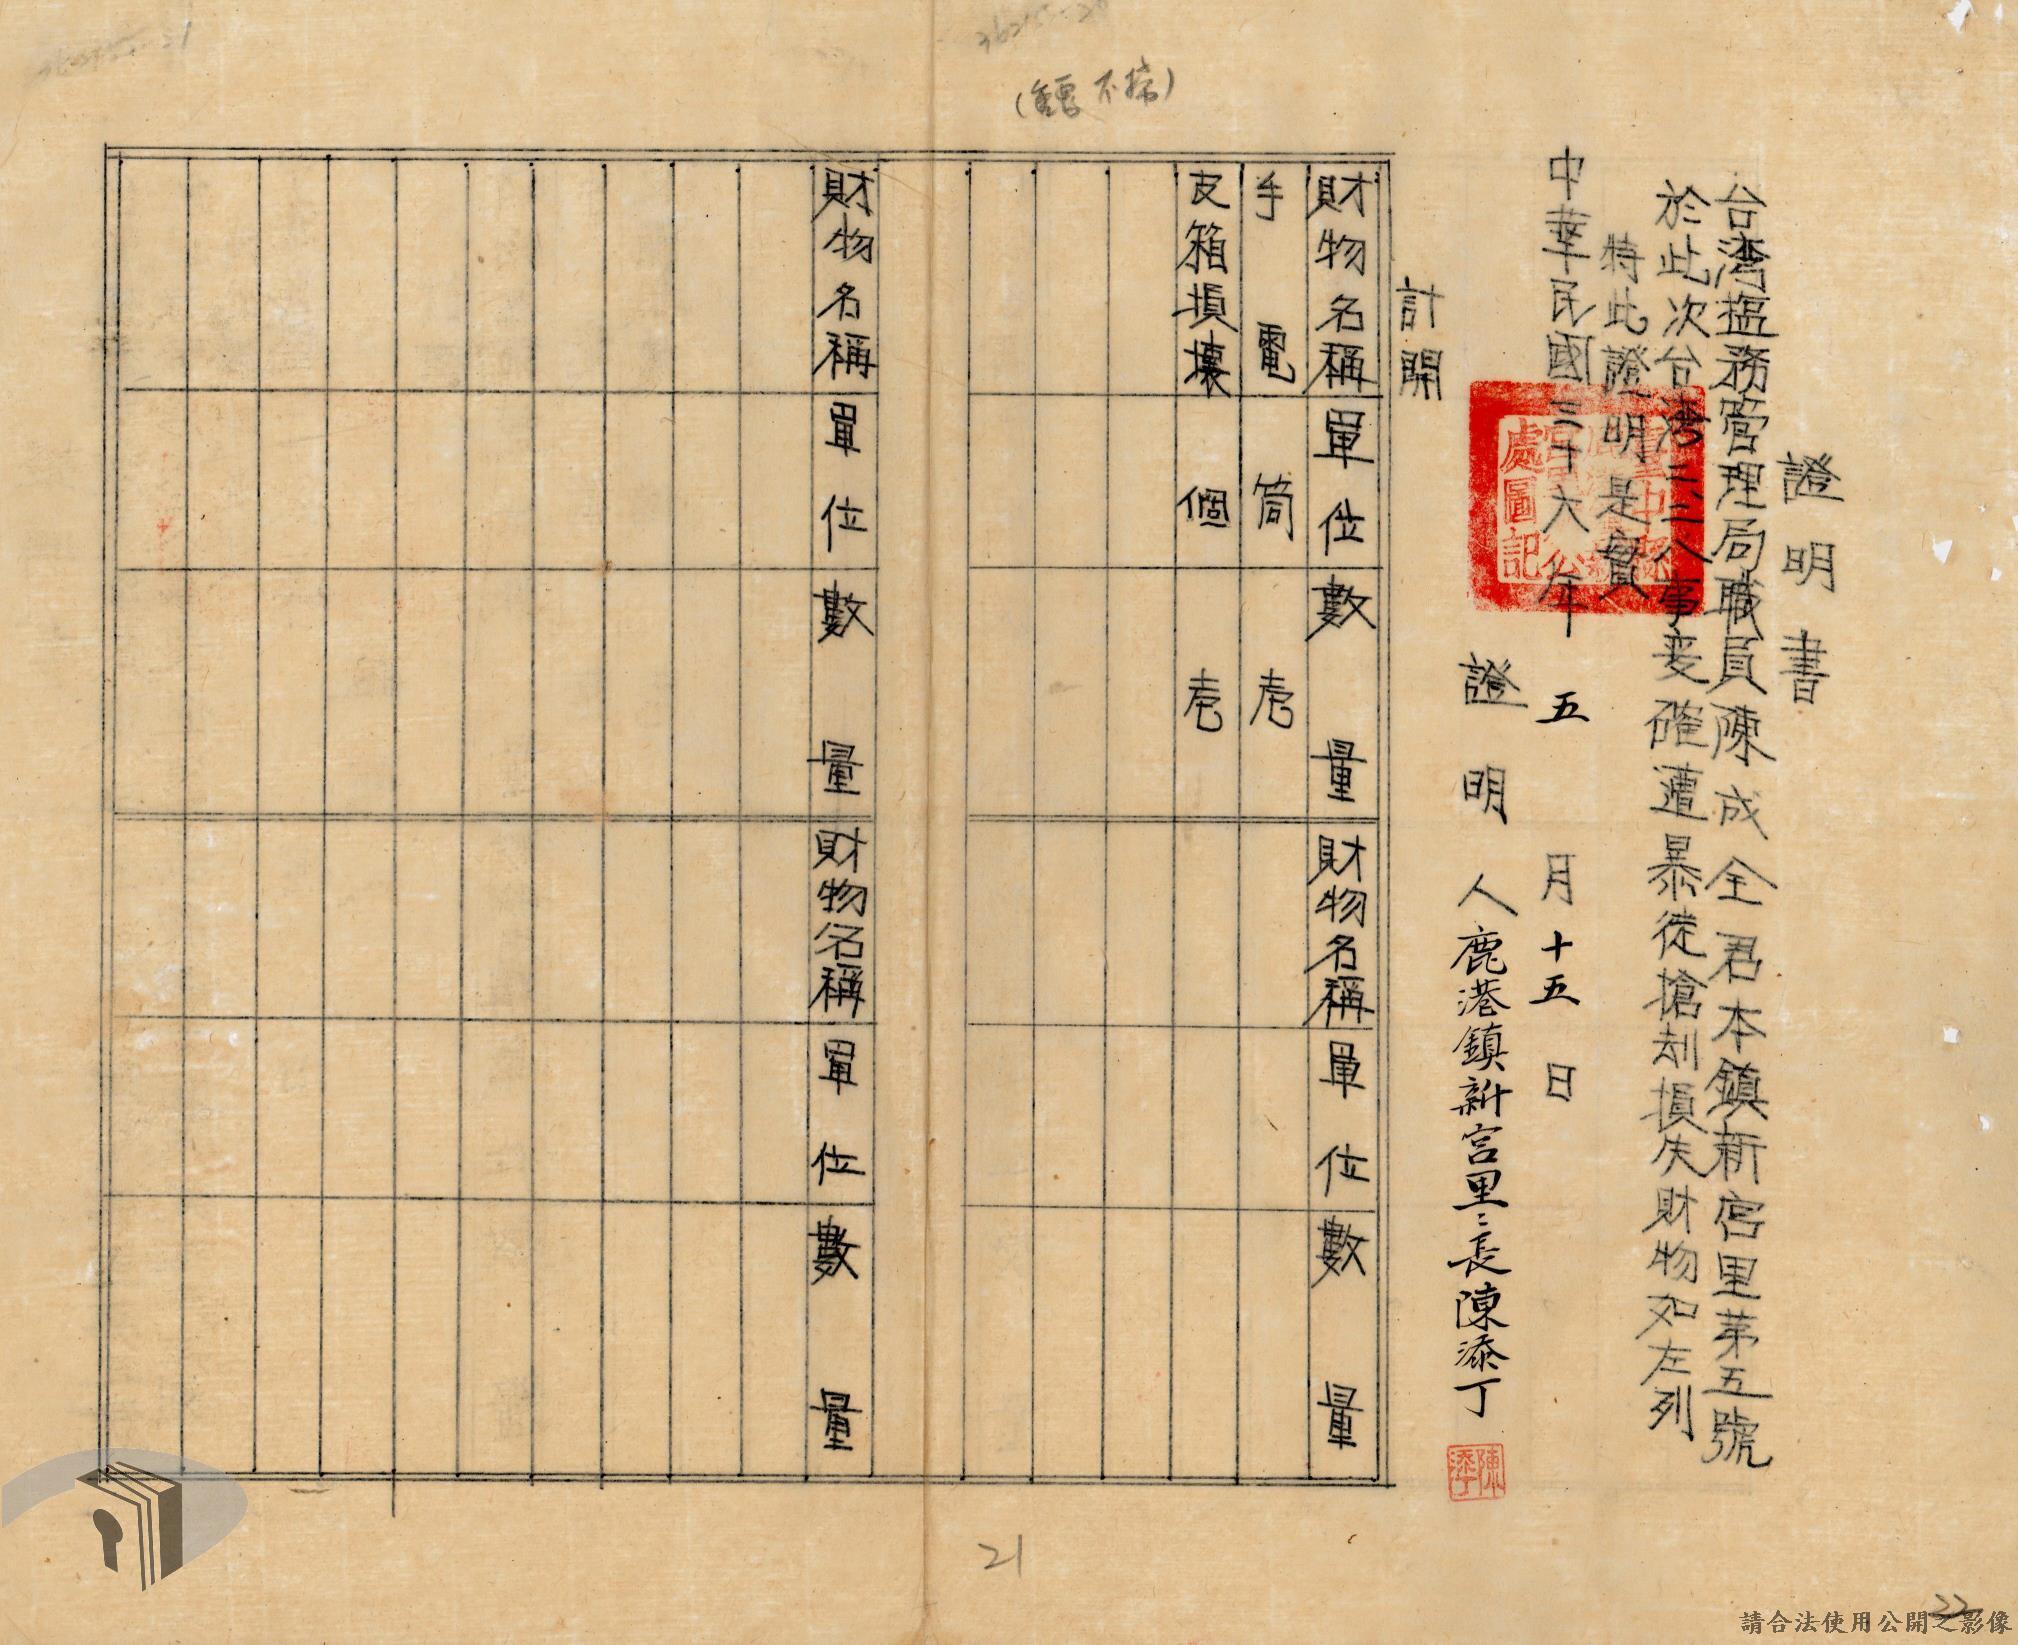 證明書
台湾塩務管理局職員陳成全君本鎮新宮里第五號
於此次台湾二、二八事変確遭暴徒搶刼損失財物如左列
特此證明是實
中華民國三十六年五月十五日
證明人鹿港鎮新宮里〻長陳添丁
陳添丁
計開
財物名稱 單位 數量 財物名稱 單位 數量
手電 筒 壱
皮箱損壞 個 壱
財物名稱 單位 數量 財物名稱 單位 數量
(重覆不掃)
21
22
請合法使用公開之影像